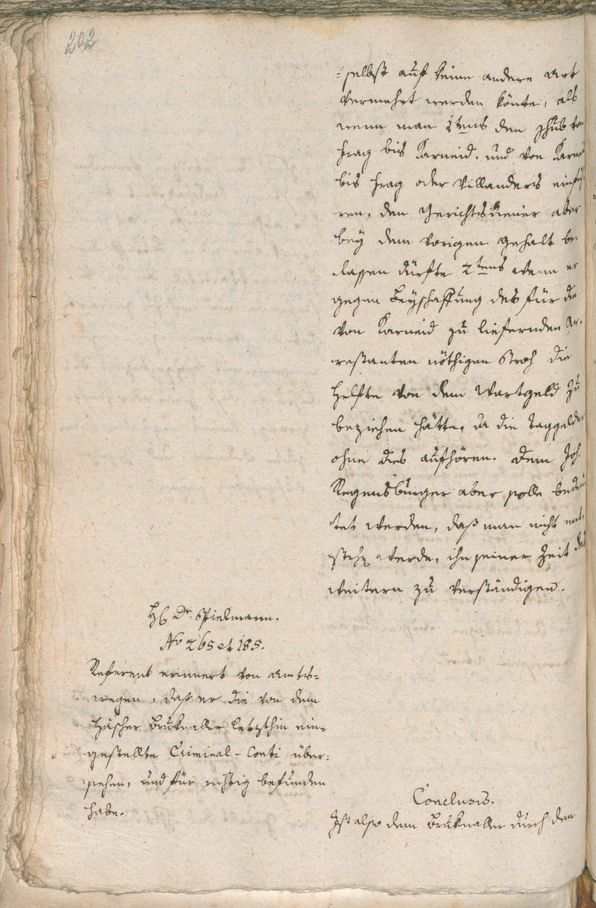 202
-selbst auf keine andere Art
vermehrt werden könte, als
wenn man 1tens den Schub von
Prag bis Karneid, und von Karneid
bis Prag oder Villanders einfüh
ren, den Gerichtsdiener aber
bey dem vorigen Gehalt be-
lassen dürfte 2tens wenn er
gegen Beyschaffung des für die
von Karneid zu liefernden Ar-
restanten nöthigen Stroh die
Helfte von dem Wartgeld zu
beziehen hätte, da die Taggelder
ohne dies aufhören. Dem Joh.
Regensburger aber solle bedeu
tet werden, daß man nicht
werde, ihn seiner Zeit des
weitern zu verständigen.
H6 Dr. Spielmann.
No 265 et 185.
Referent erinnert von Amts-
wegen, daß er die von dem
Häscher Bruknaller letzthin ein-
gestellte Criminal-Conti über-
sehen, und für richtig befunden
habe.
Conclusis.
Ist also dem Bruknaller durch den